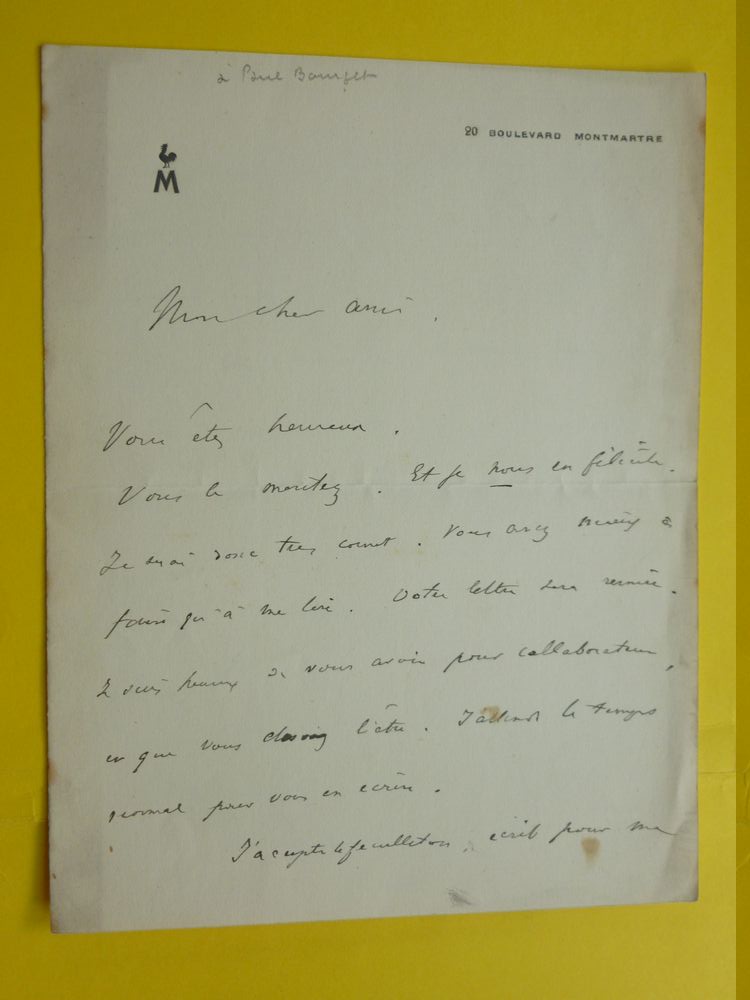 à Paul Bourget
20 BOULEVARD MONTMARTRE
M
Mon cher ami,
Vous êtes heureux.
Vous le méritez. Et je nous en félicite.
Je serai donc très court. Vous avez mieux à
faire qu'à me lire. Votre lettre sera remise.
Je suis heureux de vous avoir pour collaborateur,
et que vous l'être. J'attends le temps
normal pour vous en écrire.
J'accepte le feuilleton, écrit pour ma